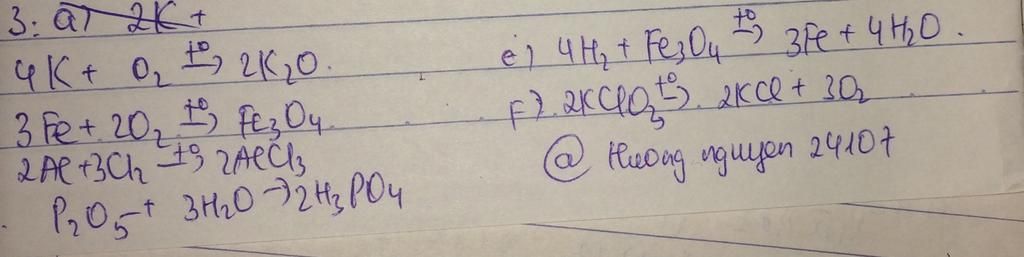 3: a) 2K +
4K + O₂ →(t°) 2K₂O.
3Fe + 2O₂ →(t°) Fe₃O₄.
2Al + 3Cl₂ →(t°) 2AlCl₃
P₂O₅ + 3H₂O → 2H₃PO₄
e) 4H₂ + Fe₃O₄ →(t°) 3Fe + 4H₂O.
F) 2KClO₃ →(t°) 2KCl + 3O₂
@ Huong nguyen 24107